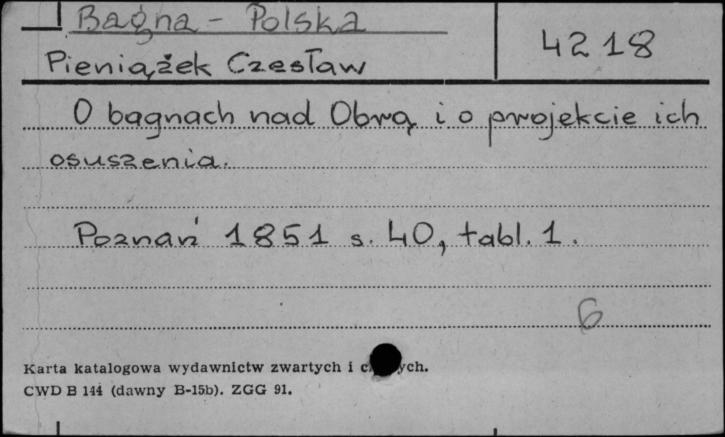 Bagna - Polska
4218
Pieniążek Czesław
O bagnach nad Obrą i o projekcie ich
osuszenia.
Poznań 1851 s. 40, tabl. 1.
6
Karta katalogowa wydawnictw zwartych i ych.
CWD B 144 (dawny B-15b). ZGG 91.